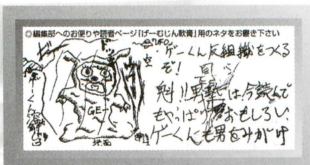 ◎編集部へのお便りや読者ページ「げーむじん軟膏」用のネタをお書き下さい
ゲーくん反組織をつくる
ぞ!
魁!!男塾は今読んで
もやっぱりおもしろい。
ゲーくんも男をみがけ
GE